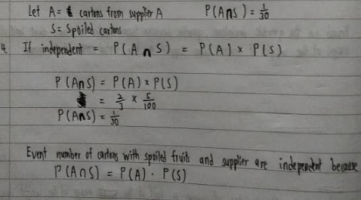 Let A = cartons from supplier A P(A∩S) = 1/30
S = Spoiled cartons
4. If independent = P(A ∩ S) = P(A) × P(S)
P(A∩S) = P(A) × P(S)
= 2/3 × 5/100
P(A∩S) = 1/30
Event number of cartons with spoiled fruits and supplier are independent because
P(A∩S) = P(A) · P(S)